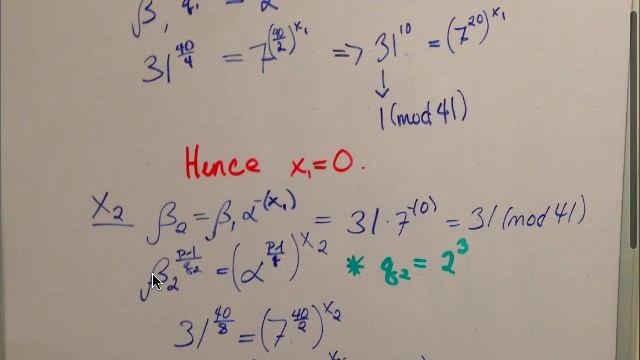 β, q₁ = α
31^(40/4) = 7^((40/2)x₁) => 31^10 = (7^20)^x₁
↓
1 (mod 41)
Hence x₁=0.
X₂ β₂ = β₁α^-(x₁) = 31·7^-(0) = 31 (mod 41)
β₂^((p-1)/q₂) = (α^((p-1)/q))^X₂ * q₂ = 2³
31^(40/8) = (7^(40/2))^x₂